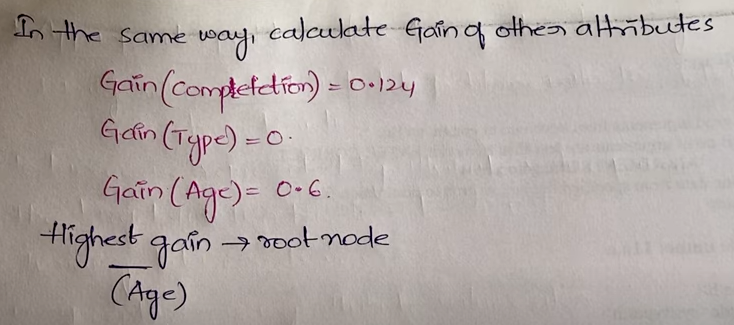 In the same way, calculate Gain of other attributes
Gain (completetion) = 0.124
Gain (Type) = 0.
Gain (Age) = 0.6.
Highest gain → root node
(Age)